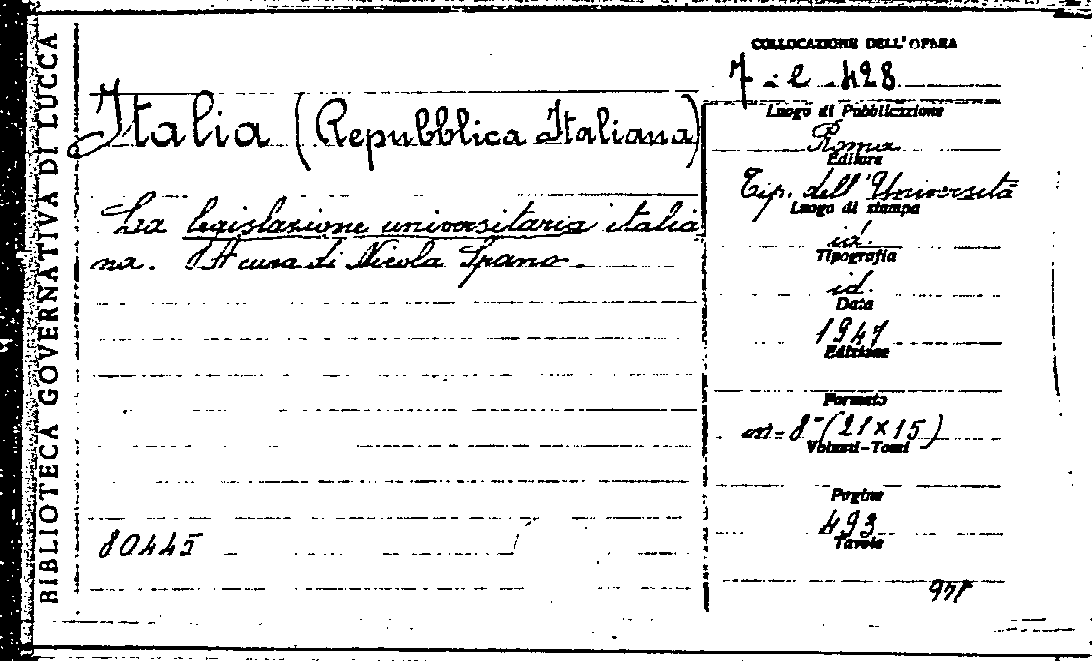 BIBLIOTECA GOVERNATIVA DI LUCCA
Italia (Repubblica Italiana)
La legislazione universitaria italia
na. A cura di Nicola Spano.
80445
COLLOCAZIONE DELL'OPERA
7 - e - 428
Luogo di Pubblicazione
Roma
Editore
Tip. dell'Università
Luogo di stampa
id.
Tipografia
id.
Data
1947
Edizione
Formato
in-8° (21×15)
Volumi-Tomi
Pagine
493
Tavole